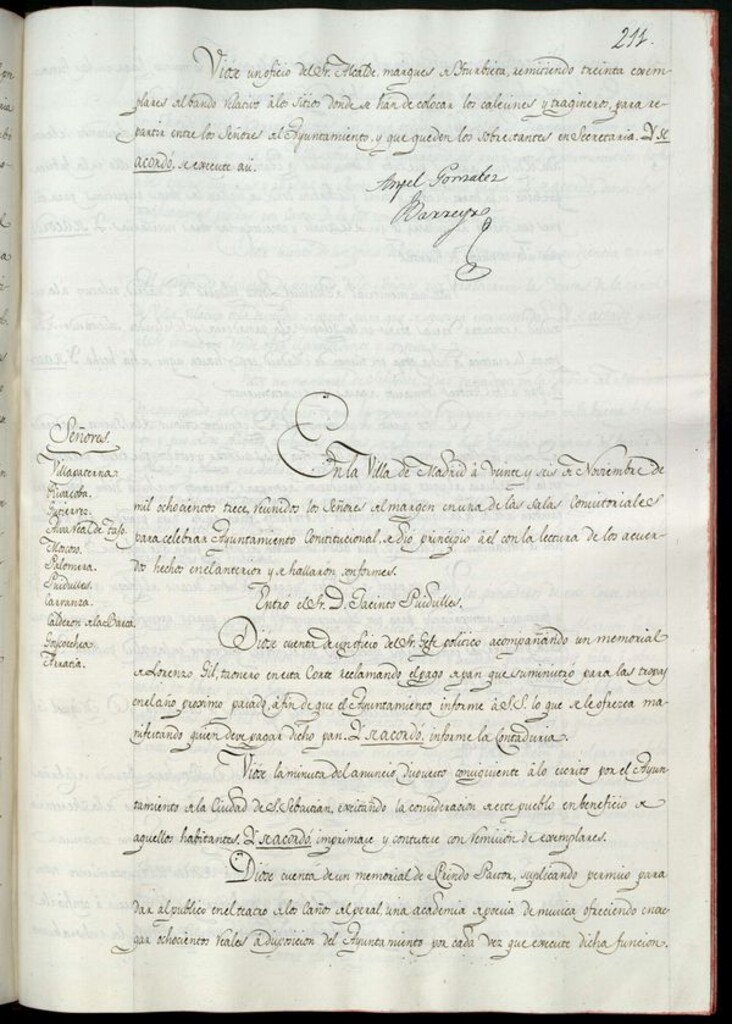 211.
Viose un oficio del Sr. Alcalde, marques de Yturbieta, remitiendo treinta exem-
plares del bando relativo à los sitios donde se han de colocar los calesines y tragineros, para re-
partir entre los Señores del Ayuntamiento, y que queden los sobrestantes en Secretaria. Y se
acordó, se execute asi.
Angel Gonzalez
Barreyro
Señores.
Villapaterna.
Rivacoba.
Gutierrez.
Alva Real de Tajo.
Moscoso.
Palomera.
Puidulles.
Carranza.
Calderon de la Barca.
Goycoechea
Arratia.
En la Villa de Madrid à veinte y seis de Noviembre de
mil ochocientos trece, reunidos los Señores del margen en una de las salas Consistoriales
para celebrar Ayuntamiento Constitucional, se dio principio à el con la lectura de los acuer-
dos hechos en el anterior y se hallaron conformes.
Entró el Sr. D. Jacinto Puidulles.
Diose cuenta de un oficio del Sr. Gefe politico acompañando un memorial
de Lorenzo Gil, taonero en esta Corte reclamando el pago de pan que suministró para las tropas
en el año proximo pasado, à fin de que el Ayuntamiento informe à S.S. lo que se le ofrezca ma-
nifestando quien deve pagar dicho pan. Y se acordó, informe la Contaduria.
Viose la minuta del anuncio dispuesto consiguiente à lo escrito por el Ayun-
tamiento de la Ciudad de S. Sebastian, excitando la consideracion de este pueblo en beneficio de
aquellos habitantes. Y se acordó, imprimase y conteste con remision de exemplares.
Diose cuenta de un memorial de Pastor, suplicando permiso para
dar al publico en el teatro de los Caños del peral, una academia de poesia de musica ofreciendo entre-
gar ochocientos reales à disposicion del Ayuntamiento por cada vez que execute dicha funcion.